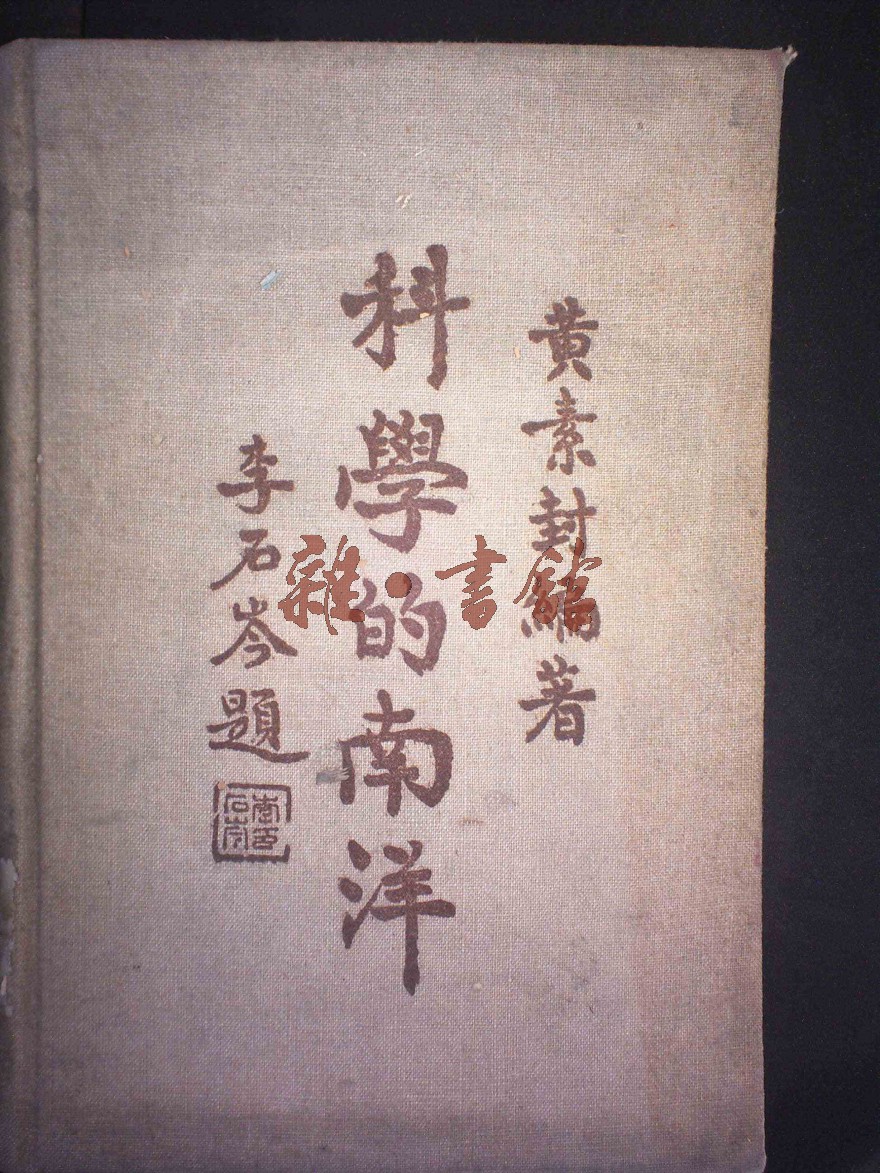 黄素封編著
科學的南洋
李石岑題
雜·書館